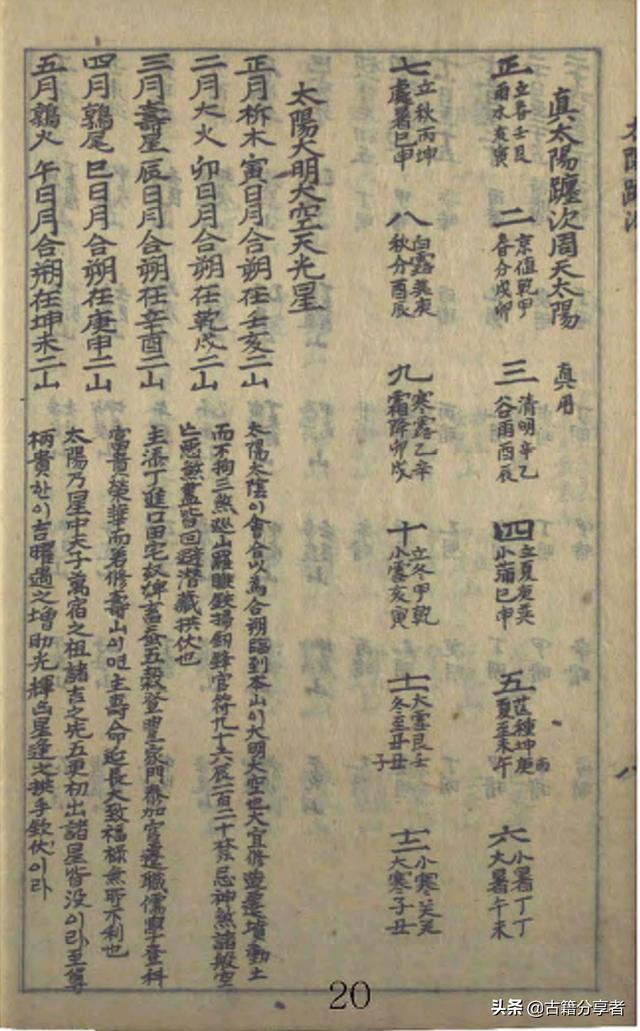 真太陽躔次周天太陽 真用
正 立春壬艮 雨水亥寅
二 京值乾甲 春分戌卯
三 清明辛乙 谷雨酉辰
四 立夏庚巽 小蒲巳申
五 芒種坤庚 丙 夏至未午
六 小暑丁丁 大暑午未
七 立秋丙坤 處暑巳申
八 白露巽庚 秋分酉辰
九 寒露乙辛 霜降卯戌
十 立冬甲乾 小雪亥寅
十一 大雪艮壬 冬至丑丑 子
十二 小寒癸癸 大寒子丑
太陽大明大空天光星
正月析木寅日月合朔在壬亥二山
二月大火卯日月合朔在乾戌二山
三月壽星辰日月合朔在辛酉二山
四月鶉尾巳日月合朔在庚申二山
五月鶉火午日月合朔在坤未二山
太陽太陰이會合以為合朔臨到本山이大明大空也大宜修造遷墳動土
而不拘三煞巡山羅睺鐵掃釼鋒官符九十六辰一百二十禁忌神煞諸般空
亡惡煞盡皆回避潛藏拱伏也
主添丁進口田宅奴婢畜蚕五穀登豊家門泰加官遷職儒學登科
富貴榮華而若修壽山이면主壽命延長大致福祿無所不利也
太陽乃星中天子萬宿之祖諸吉之先五更初出諸星皆没이라至尊
柄貴하이吉曜遇之增助光輝凶星逢之拱手欽伏이라
八
20
头条 @古籍分享者